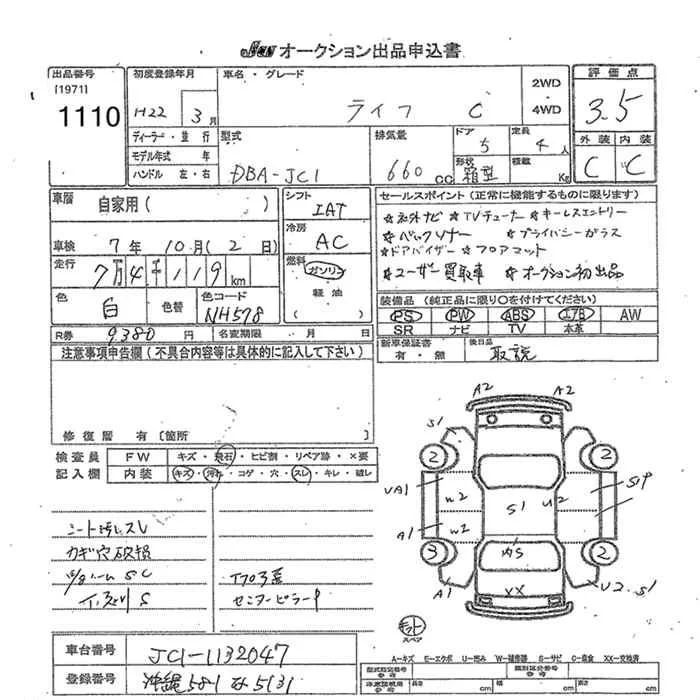 JAA オークション出品申込書
出品番号
[1971]
1110
初度登録年月
H22 3月
ディーラー・並行
モデル年式 年
ハンドル 左・右
車名・グレード
ライフ C
2WD
4WD
評価点
3.5
外装 内装
C C
型式
DBA-JC1
排気量
660 cc
ドア
5
定員
4 人
形状
箱型
積載
Kg
車歴
自家用( )
車検 7年 10月(2日)
走行
7万4千119km
色
白
色替
色コード
NH578
シフト
IAT
冷房
AC
燃料
ガソリン
軽油
( )
セールスポイント (正常に機能するものに限ります)
☆社外ナビ ☆TVチューナー ☆キーレスエントリー
☆バックソナー ☆プライバシーガラス
☆ドアバイザー ☆フロアマット
☆ユーザー買取車 ☆オークション初出品
装備品 (純正品に限り○を付けてください)
PS PW ABS エアB AW
SR ナビ TV 本革
R券 9380 円
名変期限 月 日
新車保証書
有・無
後日品
取説
注意事項申告欄(不具合内容等は具体的に記入して下さい)
修復歴 有(箇所 )
検査員
記入欄
FW キズ・飛石・ヒビ割・リペア跡・×要
内装 キズ・汚れ・コゲ・穴・スレ・キレ・破レ
シート汚レスレ
カギ穴破損
S
センターピラーP
A2 A2
S1
2 2
UA1 W2 S1 U2 S1P
A1 W2
内S
3 2
A1 XX U2.S1
スペア
車台番号 JC1-1132047
登録番号 沖縄581 み5131
A-キズ E-エクボ U-凹み W-補修跡 S-サビ C-腐食 XX-交換済
型式指定番号
参考
類別区分番号
参考
長さ cm 幅 cm 高さ cm